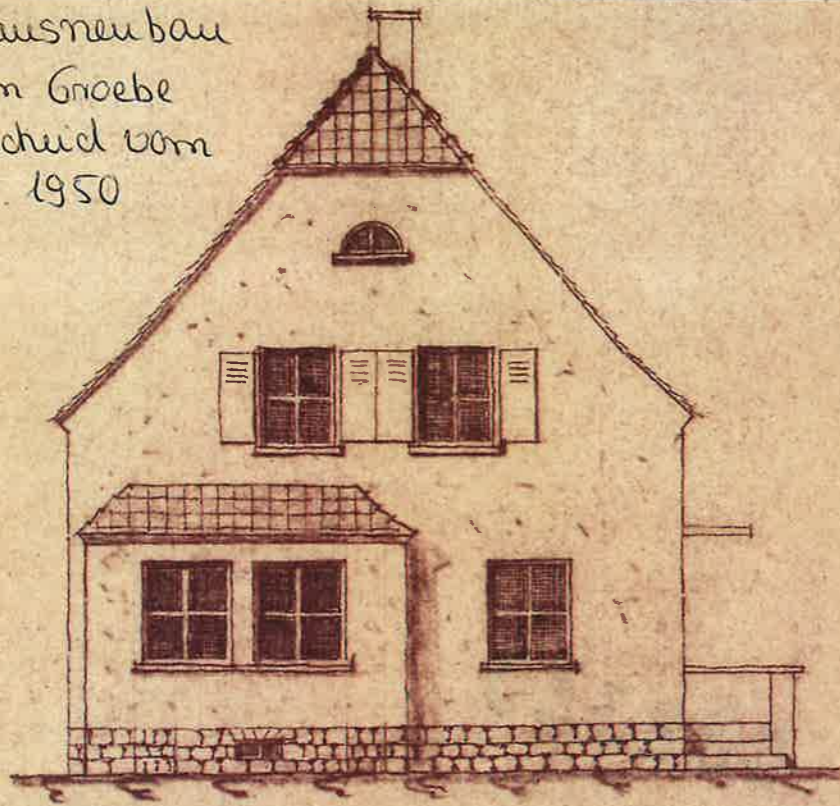 ausneubau
n Groebe
scheid vom
. 1950